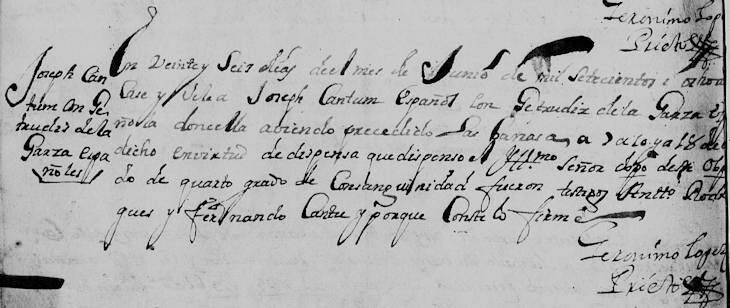 Geronimo Lopez
Prieto
Joseph Can
tum con Ge
trudis de la
Garza Espa
ñoles
En Veinte y Seis dias de el mes de Junio de mil setecientos i ochow
Case y Vele a Joseph Cantum Español con Getrudiz de la Garza Es
ñola doncella abiendo precedido las banas a 7 a 10 y a 18 de
dicho en virtud de dispensa que dispenso el Yllmo Señor obpo de este Obp
do de quarto grado de Consanguinidad fueron testigos Antto Rodr
gues y Fernando Cantu y porque Conste lo firme
Geronimo Lopez
Prieto